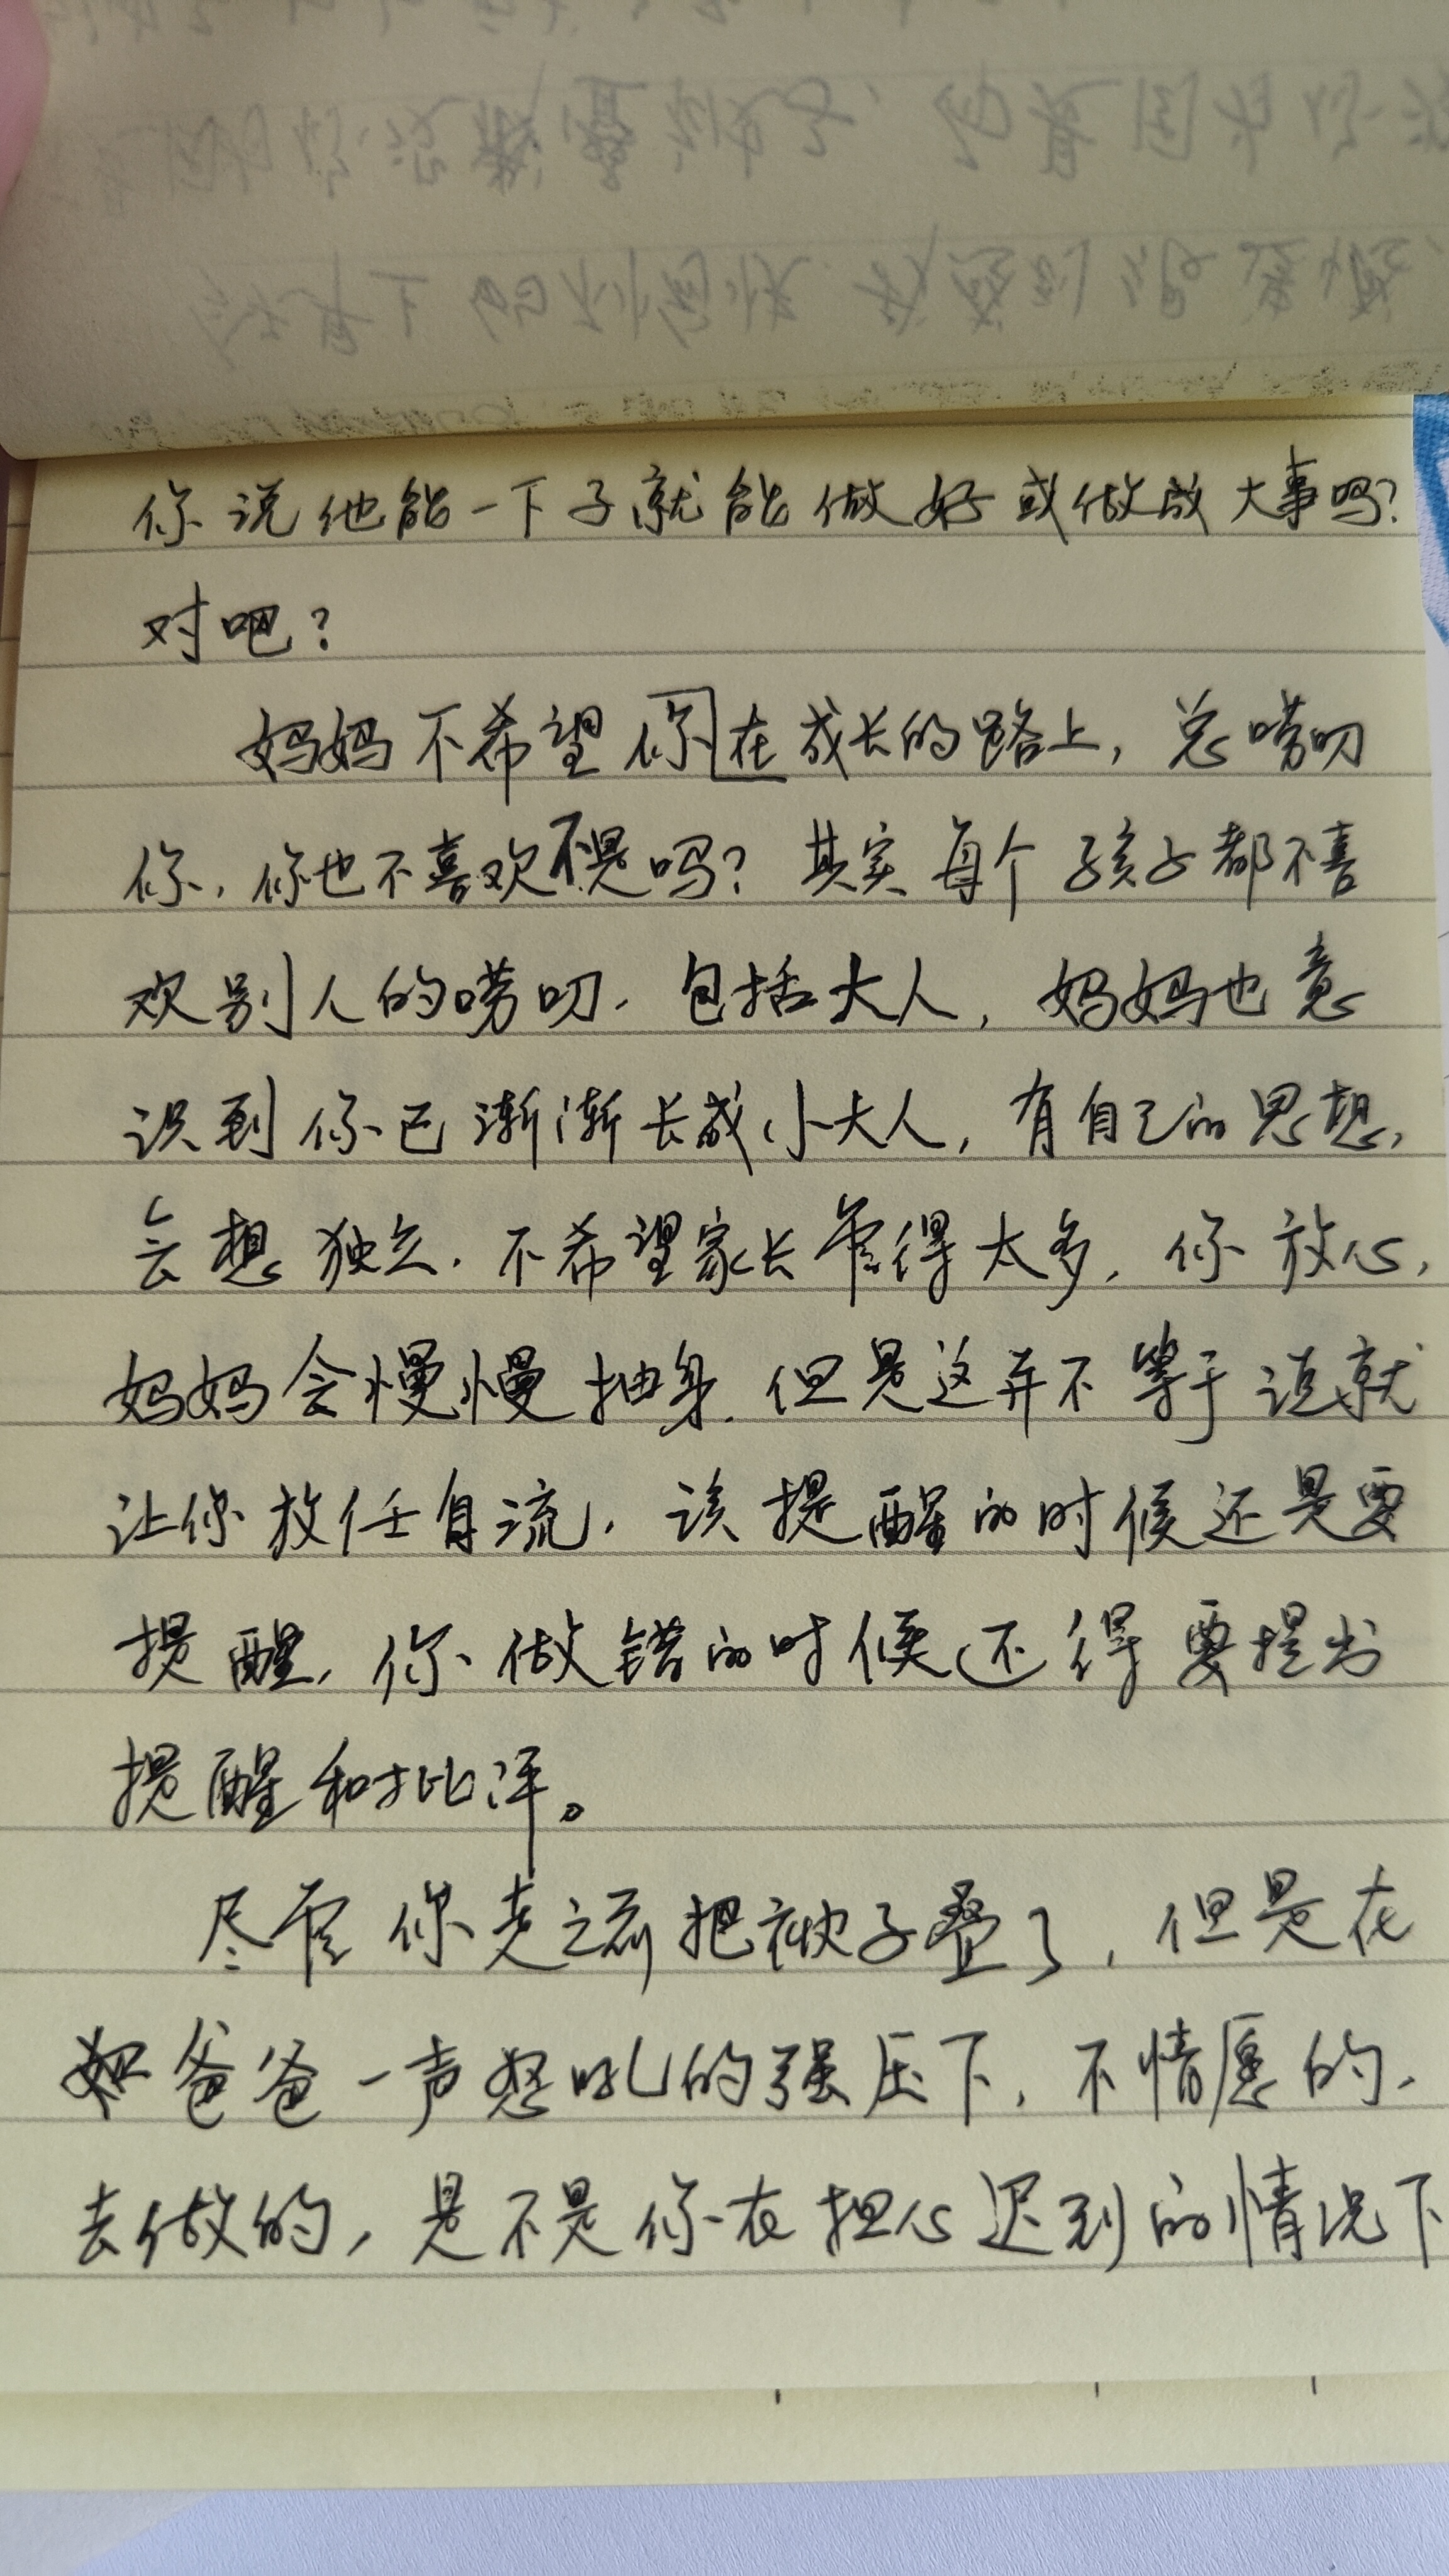 你说他能一下子就能做好或做成大事吗?
对吧?
妈妈不希望你在成长的路上,总唠叨
你,你也不喜欢不是吗?其实每个孩子都不喜
欢别人的唠叨.包括大人,妈妈也意
识到你已渐渐长成小大人,有自己的思想,
会想独立.不希望家长管得太多,你放心,
妈妈会慢慢抽身.但是这并不等于说就
让你放任自流,该提醒的时候还是要
提醒,你做错的时候还得要提出
提醒和批评。
尽管你走之前把被子叠了,但是在
爸爸一声怒吼的强压下,不情愿的,
去做的,是不是你在担心迟到的情况下